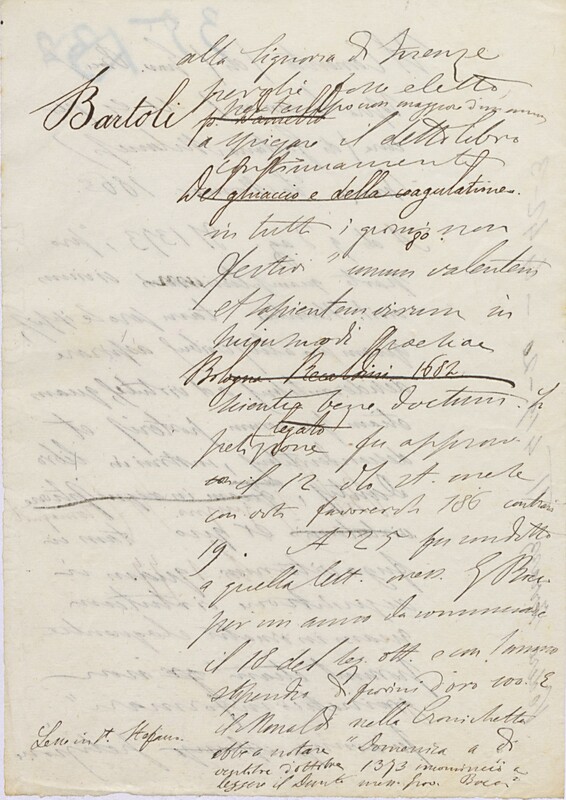 alla Signoria di Firenze
perchè fosse eletto
Bartoli
per tempo non maggiore d'un anno
a spiegare il detto libro
continuamente
Del ghiaccio e della coagulatione.
in tutti i giorni non
festivi "unum valentem
et sapientem virum in
huiusmodi
Bologna 1682
scientia bene doctum.
legato
petizione fu approva
il 12 st. mese
con voti favorevoli 186 contrari
19. A' 25 fu condotto
a quella lett. mess. G. Bocc.
per un anno da cominciare
il 18 del seg. ott. e con l'annuo
stipendio di fiorini d'oro 100. E
il Monaldi nella Cronichetta
Lesse in St. Stefano.
ebbe a notare "Domenica a di
ottobre 1373 incominciò a
leggere il Dante mess. Gio. Bocc."